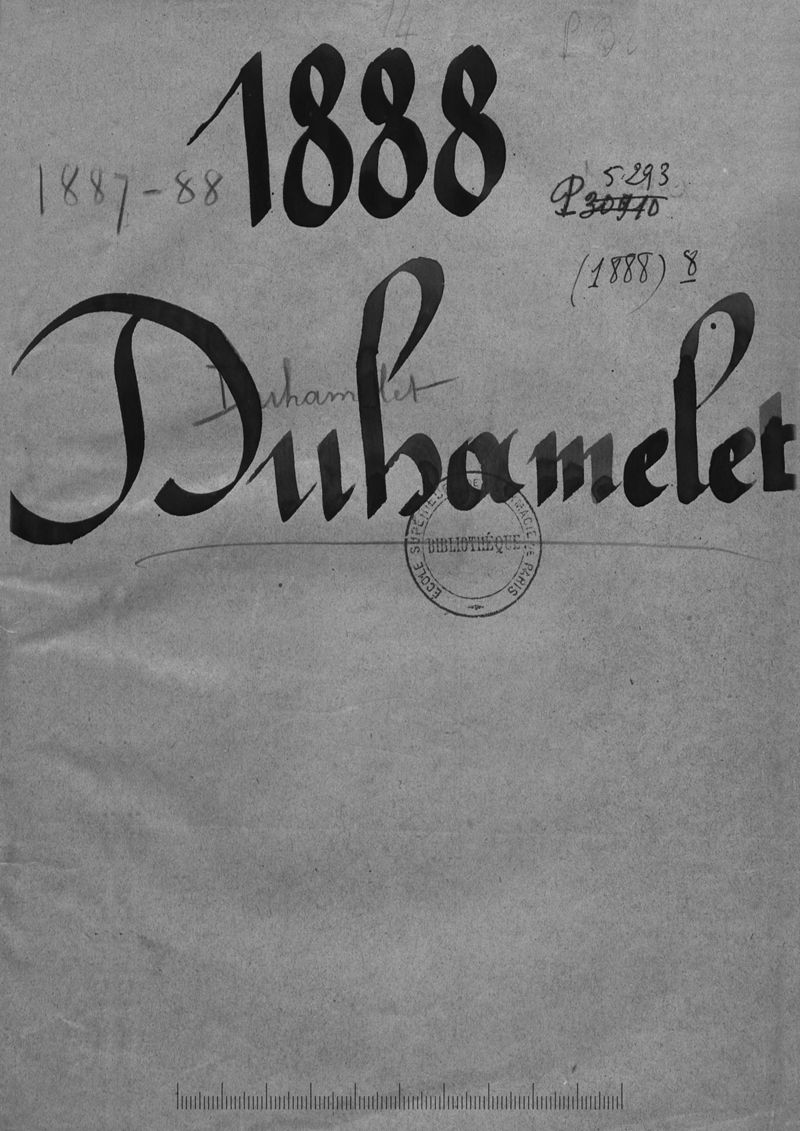 14
1888
1887-88
P 5.293
30910
(1888) 8
Duhamelet
Duhamelet
ÉCOLE SUPÉRIEURE DE PHARMACIE DE PARIS
BIBLIOTHÈQUE